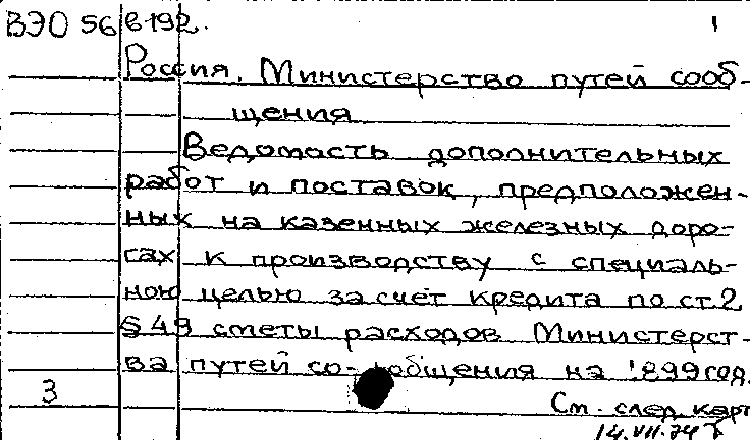 ВЭО 56 в192. 1
Россия. Министерство путей сооб-
щения
Ведомость дополнительных
работ и поставок, предположен-
ных на казенных железных доро-
гах к производству с специаль-
ною целью за счет кредита по ст.2
§ 49 сметы расходов Министерст-
ва путей со- общения на 1899 год.
3
См. след. карт
14.VII.74